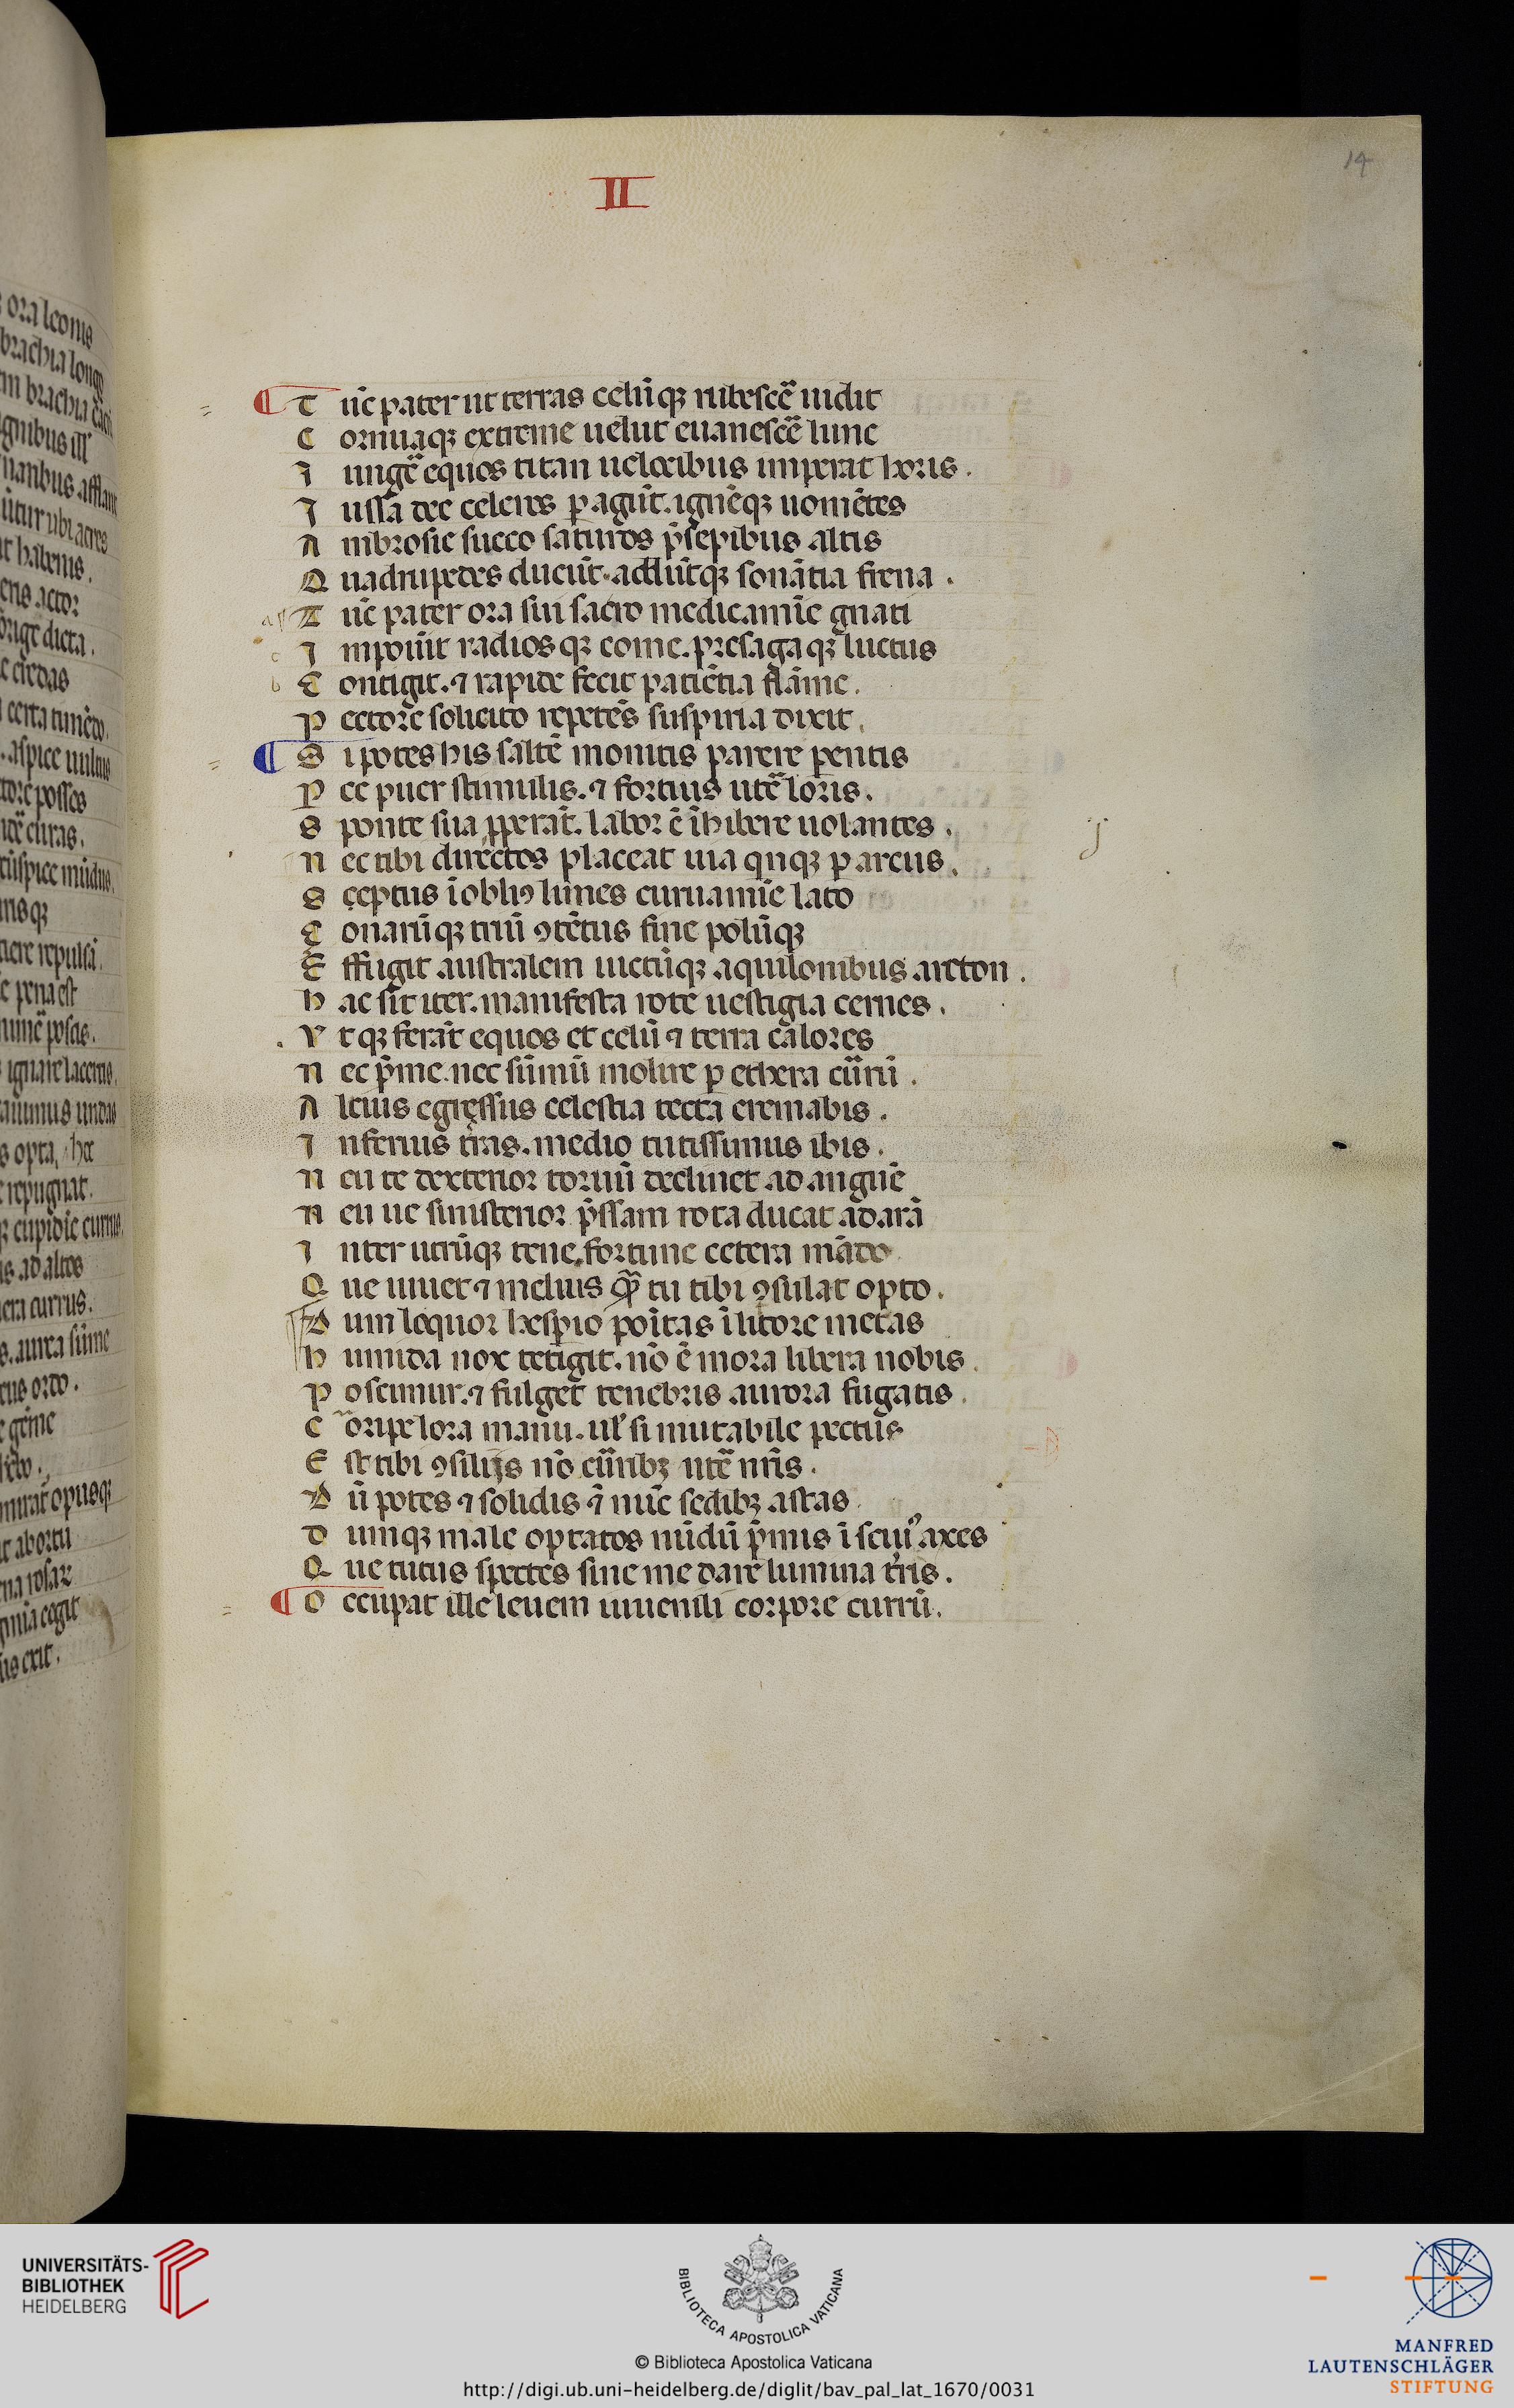 II
14
T ūc pater ut terras celūqꝫ rubescē uidit
C ornuaqꝫ extreme uelut euanescē lune
I ungē equos titan uelocibus imperat horis.
I ussa dee celeres ꝑagūt. ignēqꝫ uomētes
A mbrosie succo saturos p̄sepibus altis
Q uadrupedes ducūt. addūtqꝫ sonātia frena.
T ūc pater ora sui sacro medicamīe gnati
I mpoūit radiosqꝫ come. presagaqꝫ luctus
C ontigit. ⁊ rapide fecit patiētia flāme.
P ectore solicito repetēs suspiria dixit.
S i potes his saltē monitis parere parentis
P ce puer stimulis. ⁊ fortius utē loris.
S ponte sua ꝓperāt. labor ē īhibere uolantes.
N ec tibi directos placeat uia quīqꝫ ꝑ arcus.
S ectus ī obliꝯ limes curuamīe lato
C onarūqꝫ triū ꝯtētus fine polūqꝫ
E ffugit australem iuctūqꝫ aquilonibus arcton.
H ac sit iter. manifesta rote uestigia cernes.
V tqꝫ ferāt equos et celū ⁊ terra calores
N ec p̄me. nec sūmū molire ꝑ ethera cūrū.
A lcius egressus celestia tecta cremabis.
I nferius t̄ras. medio tutissimus ibis.
N eu te dexterior tortū declinet ad anguē
N eu ue sinisterior p̄ssam rota ducat ad arā
I nter utrūqꝫ tene. fortune cetera mādo
Q ue iuuet ⁊ melius q̄ꝫ tu tibi ꝯsulat opto.
D um loquor hesꝑio poītas ī litore metas
H umida nox tetigit. nō ē mora libera nobis
P oscimur. ⁊ fulget tenebris aurora fugatis.
C orripe lora manu. ul̄ si mutabile pectus
E st tibi ꝯsilijs nō cūribꝫ utē nr̄is.
D ū potes ⁊ solidis ⁊ nūc sedibꝫ astas
D umqꝫ male optatos nūdū p̄mis īsciuꝰ axes
Q ue tutus spectes sine me dare lumina t̄ris.
O ccupat ille leuem iuuenili corpore currū.
UNIVERSITÄTS-
BIBLIOTHEK
HEIDELBERG
BIBLIOTECA APOSTOLICA VATICANA
© Biblioteca Apostolica Vaticana
http://digi.ub.uni-heidelberg.de/diglit/bav_pal_lat_1670/0031
MANFRED
LAUTENSCHLÄGER
STIFTUNG